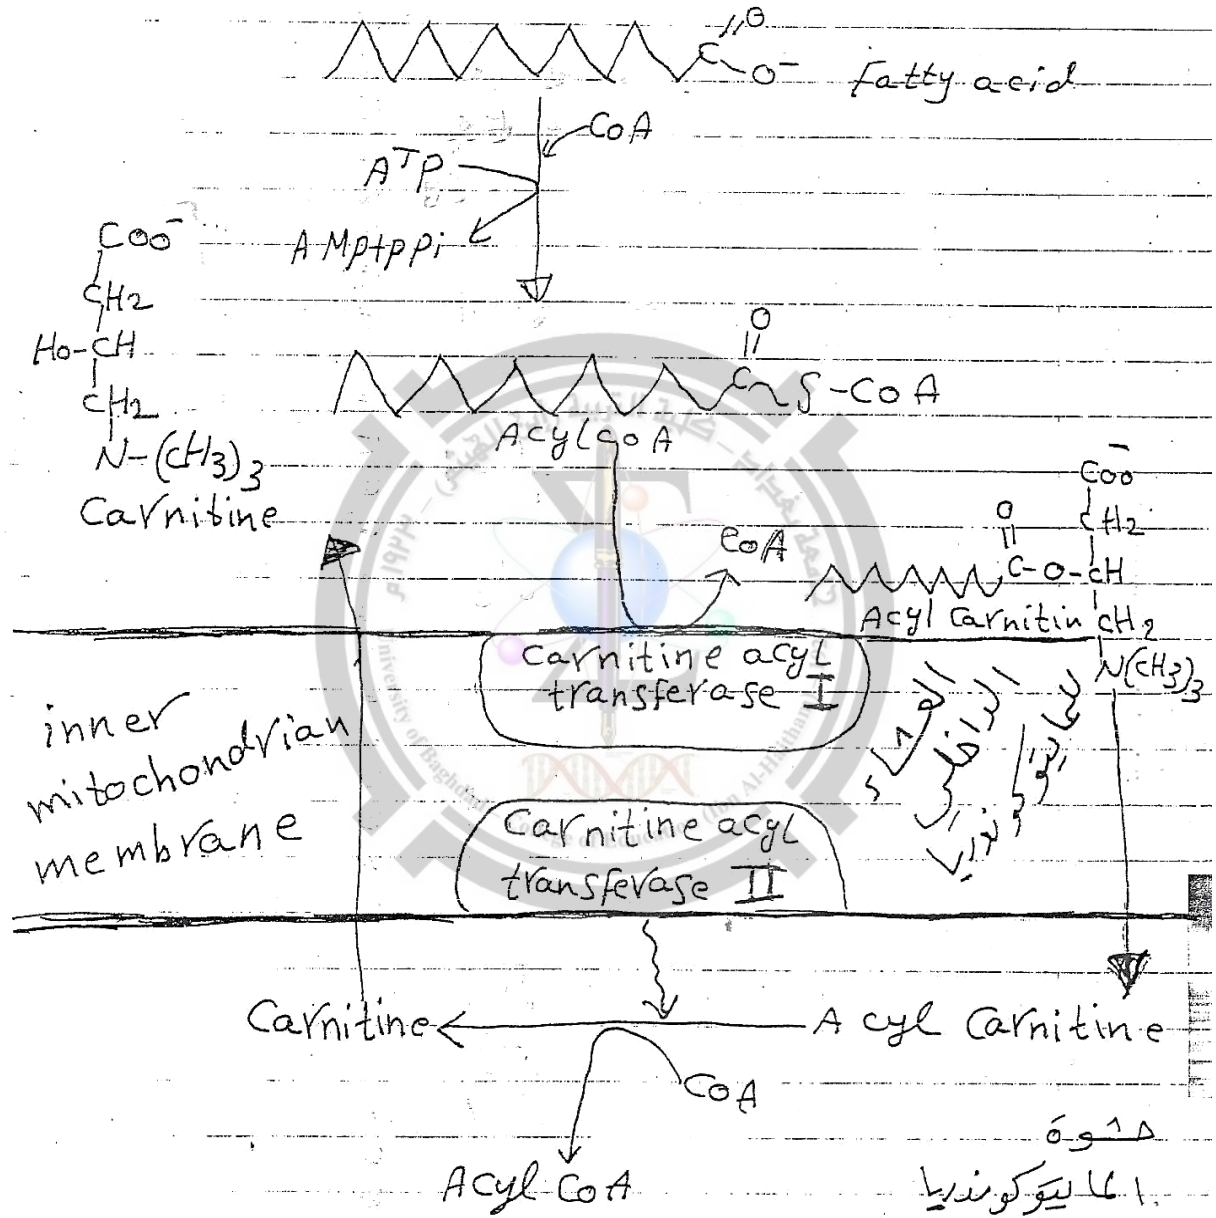 O
C
O-
Fatty acid
CoA
ATP
AMp+ppi
Coo-
CH2
Ho-CH
CH2
N-(CH3)3
Carnitine
O
C~S-CoA
Acyl CoA
CoA
Coo-
CH2
O
C-O-CH
Acyl Carnitin CH2
N(CH3)3
Carnitine acyl
transferase I
inner
mitochondrian
membrane
الغشاء
الداخلي
للمايتوكوندريا
Carnitine acyl
transferase II
Carnitine
Acyl Carnitine
CoA
Acyl CoA
حشوة
المايتوكوندريا
University of Baghdad - College of Education (Ibn Al-Haitham)